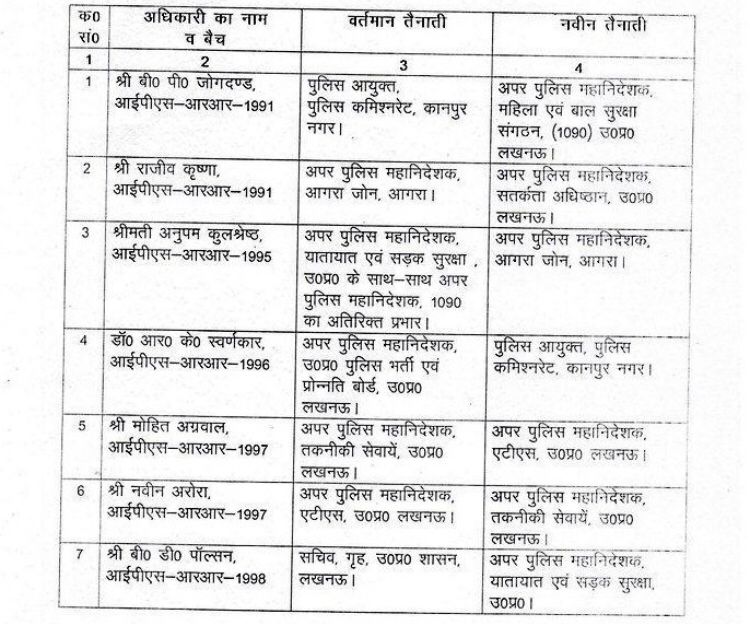 क0 सं0
अधिकारी का नाम व बैच
वर्तमान तैनाती
नवीन तैनाती
1
2
3
4
1
श्री बी0 पी0 जोगदण्ड,
आईपीएस–आरआर–1991
पुलिस आयुक्त,
पुलिस कमिश्नरेट, कानपुर
नगर।
अपर पुलिस महानिदेशक,
महिला एवं बाल सुरक्षा
संगठन, (1090) उ0प्र0
लखनऊ।
2
श्री राजीव कृष्णा,
आईपीएस–आरआर–1991
अपर पुलिस महानिदेशक,
आगरा जोन, आगरा।
अपर पुलिस महानिदेशक,
सतर्कता अधिष्ठान, उ0प्र0
लखनऊ।
3
श्रीमती अनुपम कुलश्रेष्ठ,
आईपीएस–आरआर–1995
अपर पुलिस महानिदेशक,
यातायात एवं सड़क सुरक्षा ,
उ0प्र0 के साथ–साथ अपर
पुलिस महानिदेशक, 1090
का अतिरिक्त प्रभार।
अपर पुलिस महानिदेशक,
आगरा जोन, आगरा।
4
डॉ0 आर0 के0 स्वर्णकार,
आईपीएस–आरआर–1996
अपर पुलिस महानिदेशक,
उ0प्र0 पुलिस भर्ती एवं
प्रोन्नति बोर्ड, उ0प्र0
लखनऊ।
पुलिस आयुक्त, पुलिस
कमिश्नरेट, कानपुर नगर।
5
श्री मोहित अग्रवाल,
आईपीएस–आरआर–1997
अपर पुलिस महानिदेशक,
तकनीकी सेवायें, उ0प्र0
लखनऊ।
अपर पुलिस महानिदेशक,
एटीएस, उ0प्र0 लखनऊ।
6
श्री नवीन अरोरा,
आईपीएस–आरआर–1997
अपर पुलिस महानिदेशक,
एटीएस, उ0प्र0 लखनऊ।
अपर पुलिस महानिदेशक,
तकनीकी सेवायें, उ0प्र0
लखनऊ।
7
श्री बी0 डी0 पॉल्सन,
आईपीएस–आरआर–1998
सचिव, गृह, उ0प्र0 शासन,
लखनऊ।
अपर पुलिस महानिदेशक,
यातायात एवं सड़क सुरक्षा,
उ0प्र0।